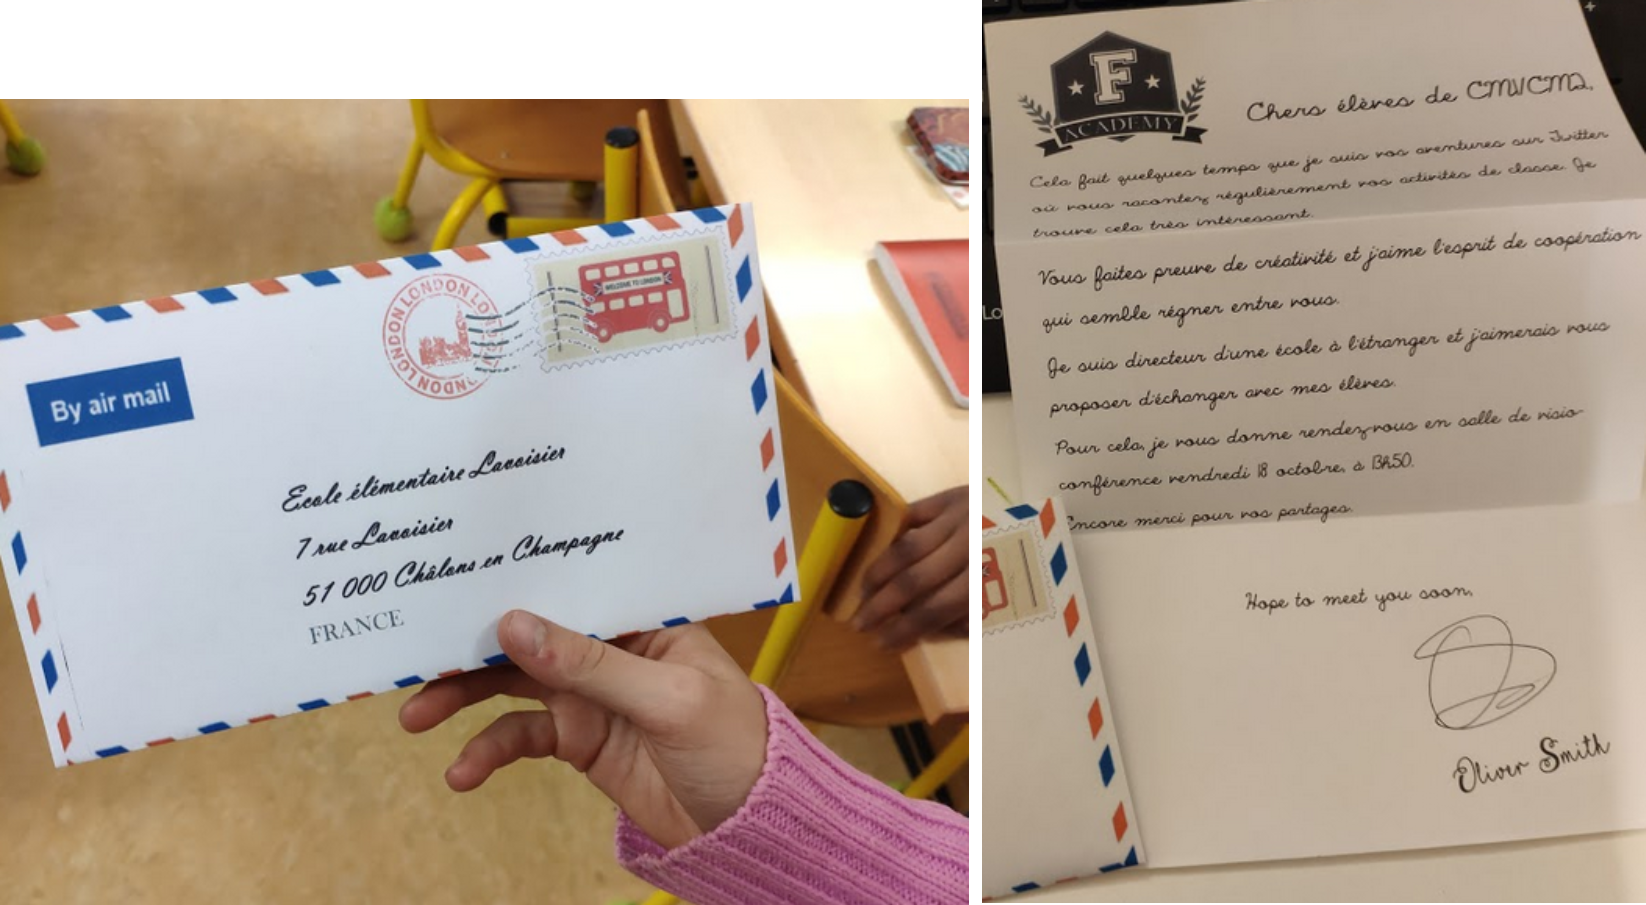 LONDON LONDON LO
LONDON LONDON
WELCOME TO LONDON
By air mail
Ecole élémentaire Lavoisier
7 rue Lavoisier
51 000 Châlons en Champagne
FRANCE
F
ACADEMY
Chers élèves de CM1/CM2,
Cela fait quelques temps que je suis vos aventures sur Twitter
où vous racontez régulièrement vos activités de classe. Je
trouve cela très intéressant.
Vous faites preuve de créativité et j'aime l'esprit de coopération
qui semble régner entre vous.
Je suis directeur d'une école à l'étranger et j'aimerais vous
proposer d'échanger avec mes élèves.
Pour cela, je vous donne rendez-vous en salle de visio-
conférence vendredi 18 octobre, à 13h50.
Encore merci pour vos partages.
Hope to meet you soon,
Oliver Smith
Lo